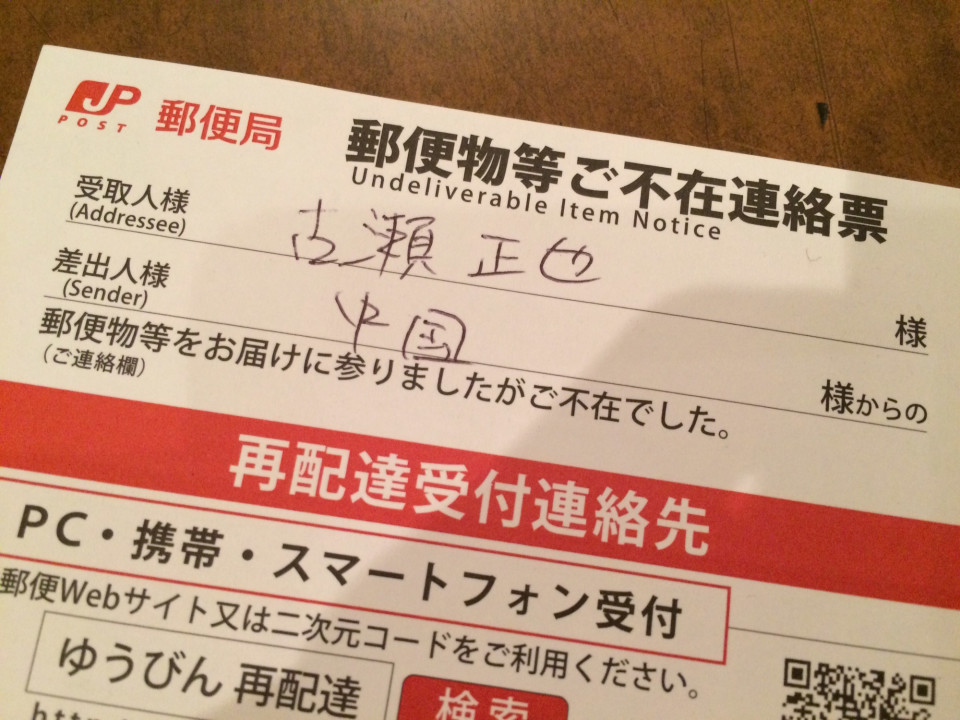 JP
POST
郵便局
郵便物等ご不在連絡票
Undeliverable Item Notice
受取人様
(Addressee)
古瀬 正也
様
差出人様
(Sender)
中国
様からの
郵便物等をお届けに参りましたがご不在でした。
(ご連絡欄)
再配達受付連絡先
PC・携帯・スマートフォン受付
郵便Webサイト又は二次元コードをご利用ください。
ゆうびん 再配達
検索